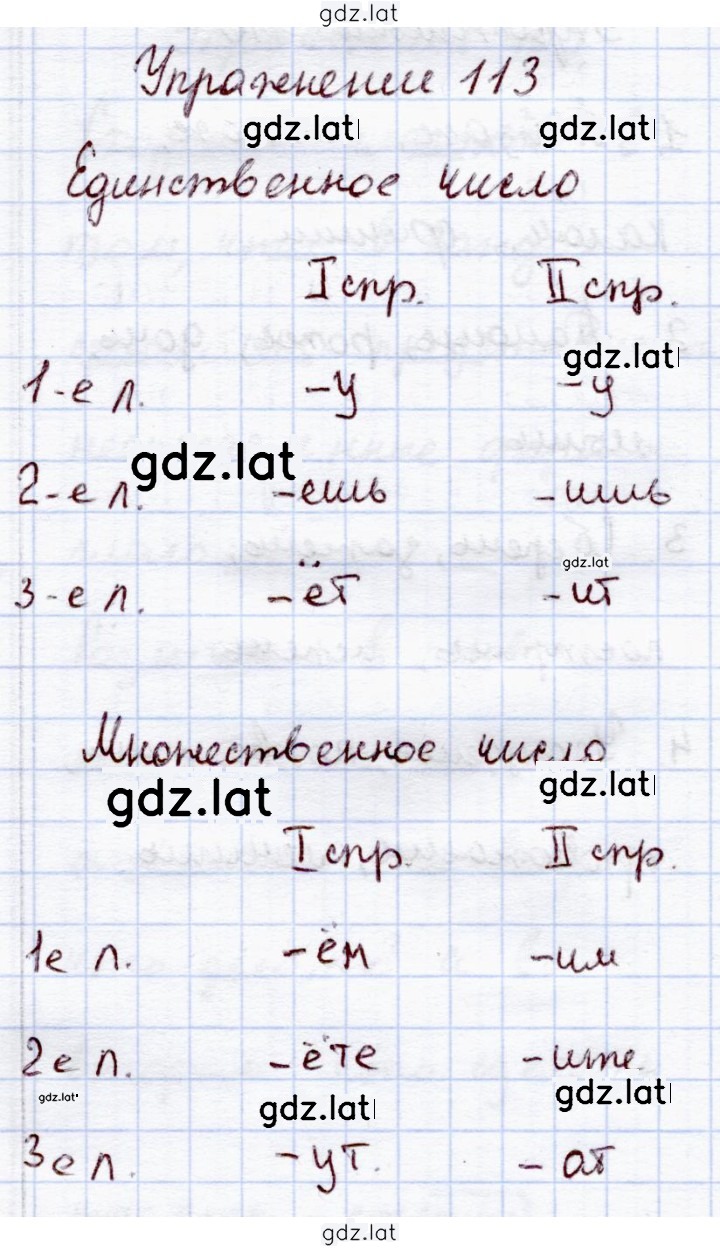 gdz.lat
Упражнение 113
gdz.lat gdz.lat
Единственное число
I спр. II спр.
gdz.lat
1-е л. -у -у
gdz.lat
2-е л. -ешь -ишь
gdz.lat
3-е л. -ёт -ит
Множественное число
gdz.lat gdz.lat
I спр. II спр.
1е л. -ём -им
2е л. -ёте -ите
gdz.lat gdz.lat gdz.lat
3е л. -ут. -ат
gdz.lat